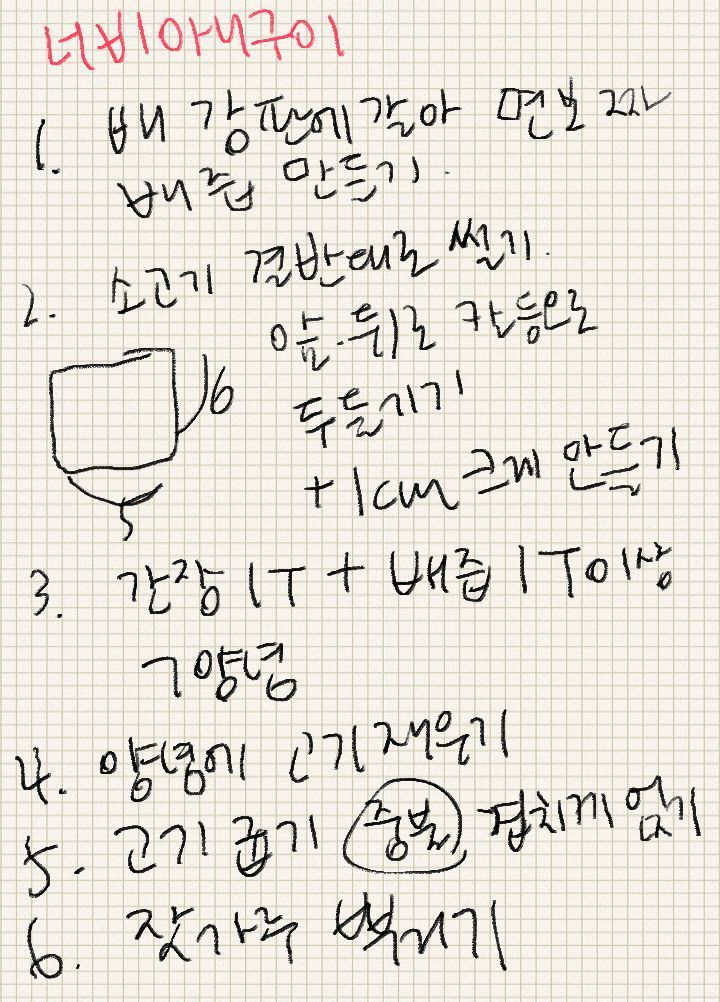 너비아니구이
1. 배 강판에 갈아 면보 짜
배즙 만들기.
2. 소고기 결반대로 썰기.
앞.뒤로 칼등으로
6
두들기기
+1cm 크게 만들기
5
3. 간장 1T + 배즙 1T이상
ㄱ양념
4. 양념에 고기 재우기
5. 고기 굽기 중불 겹치게 얹기
6. 잣가루 뿌리기